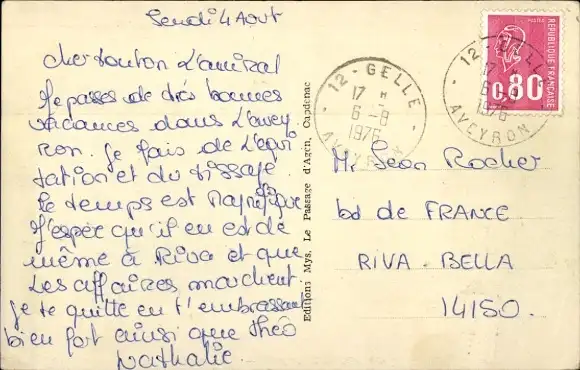 Jeudi 4 Aout
cher tonton L'amiral
Je passes de très bonnes
vacances dans L'avey
ron. Je fais de L'équi
tation et du tissage.
Le temps est magnifique
J'espère qu'il en est de
même à Riva et que
Les affaires marchent.
je te quitte en t'embrassant
bien fort ainsi que Théo
Nathalie
Editions Mys. Le Passage d'Agen, Capdenac
12 - GELLE
17 H
6 - 8
1976
AVEYRON
12 - GELLE
17 H
6 - 8
1976
AVEYRON
POSTES
0,80
REPUBLIQUE FRANÇAISE
Mr Jean Rocher
bd de FRANCE
RIVA-BELLA
14150.